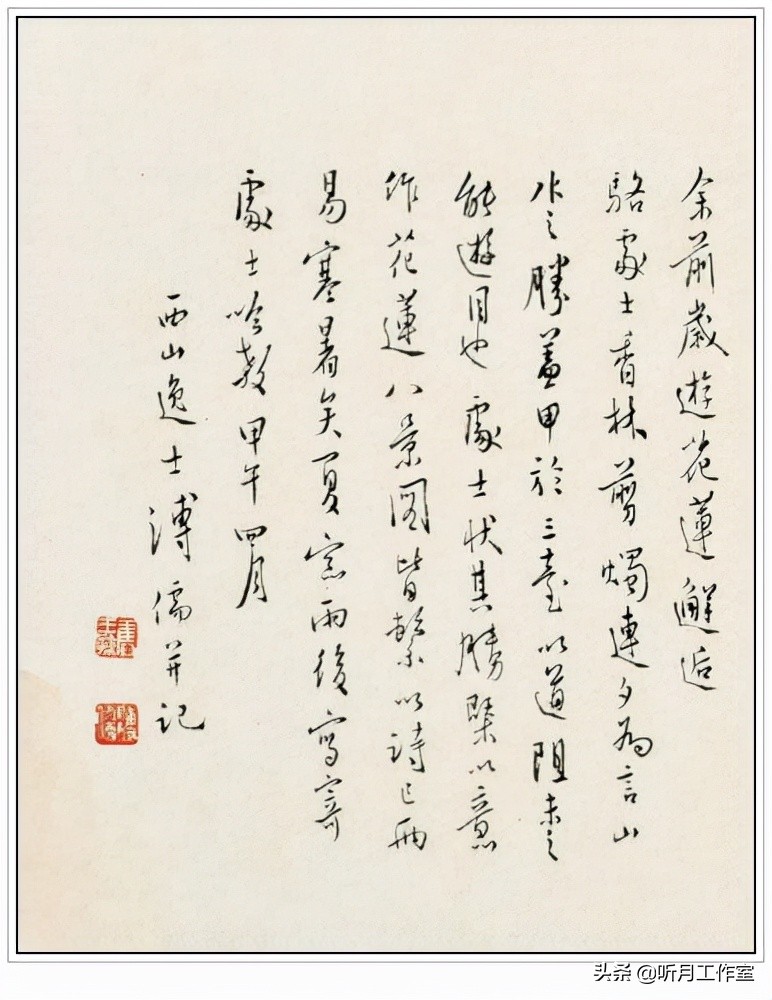 余前歲遊花蓮邂逅
駱處士香林剪燭連夕為言山
水之勝蓋甲於三臺以道阻未之
能遊目也處士狀其勝槩以意
作花蓮八景圖皆繫以詩已兩
易寒暑矣夏窓雨後寫寄
處士吟教甲午四月
西山逸士溥儒并記
头条 @听月工作室